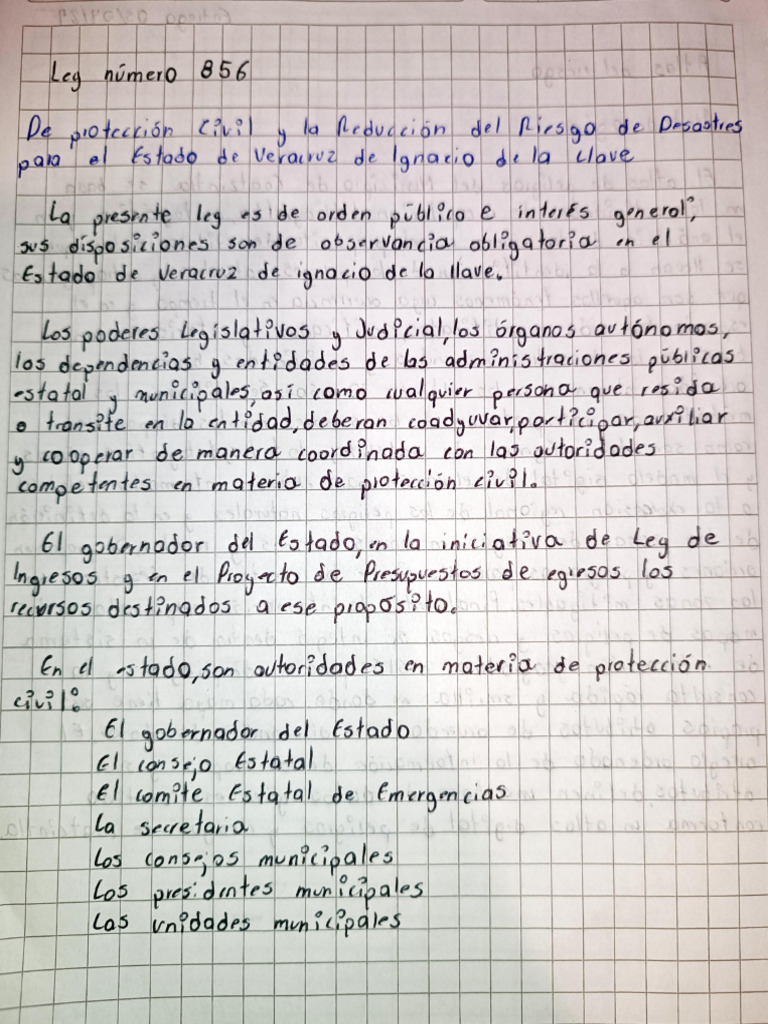 Ley número 856
De protección Civil y la Reducción del Riesgo de Desastres
para el Estado de Veracruz de Ignacio de la llave
La presente ley es de orden público e interés general,
sus disposiciones son de observancia obligatoria en el
Estado de Veracruz de ignacio de la llave.
Los poderes Legislativos y Judicial, los órganos autónomos,
los dependencias y entidades de las administraciones públicas
estatal y municipales, así como cualquier persona que resida
o transite en la entidad, deberan coadyuvar, participar, auxiliar
y cooperar de manera coordinada con las autoridades
competentes en materia de protección civil.
El gobernador del Estado, en la iniciativa de Ley de
Ingresos y en el Proyecto de Presupuestos de egresos los
recursos destinados a ese proposito.
En el estado, son autoridades en materia de protección
civil:
El gobernador del Estado
El consejo Estatal
El comite Estatal de Emergencias
La secretaria
Los consejos municipales
Los presidentes municipales
Las unidades municipales